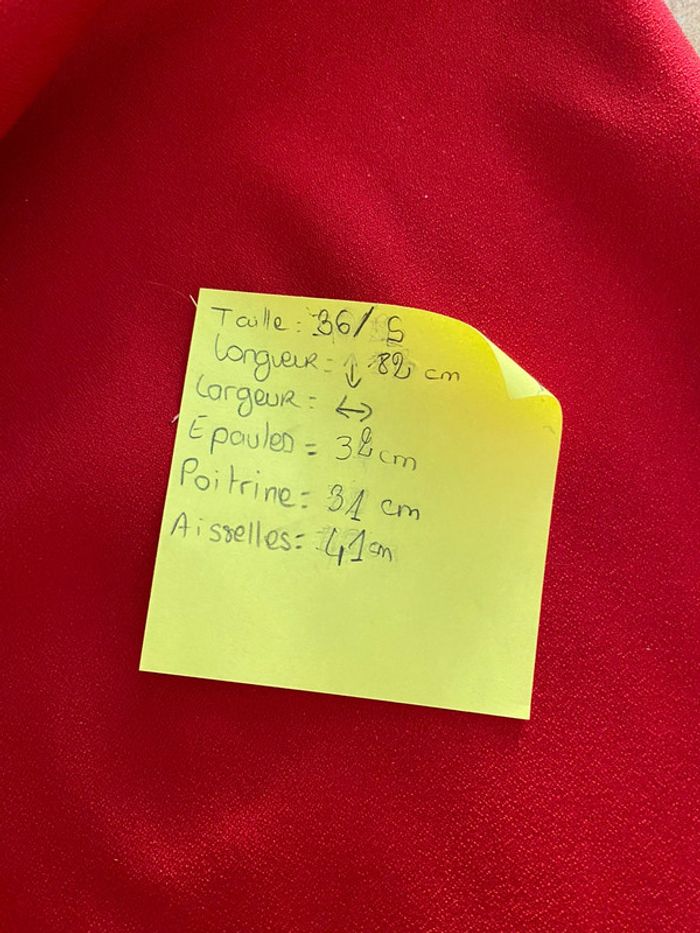 Taille : 36/ S
Longueur = ↕ 82 cm
Largeur = ↔
Epaules = 32 cm
Poitrine = 31 cm
Aisselles = 41 cm